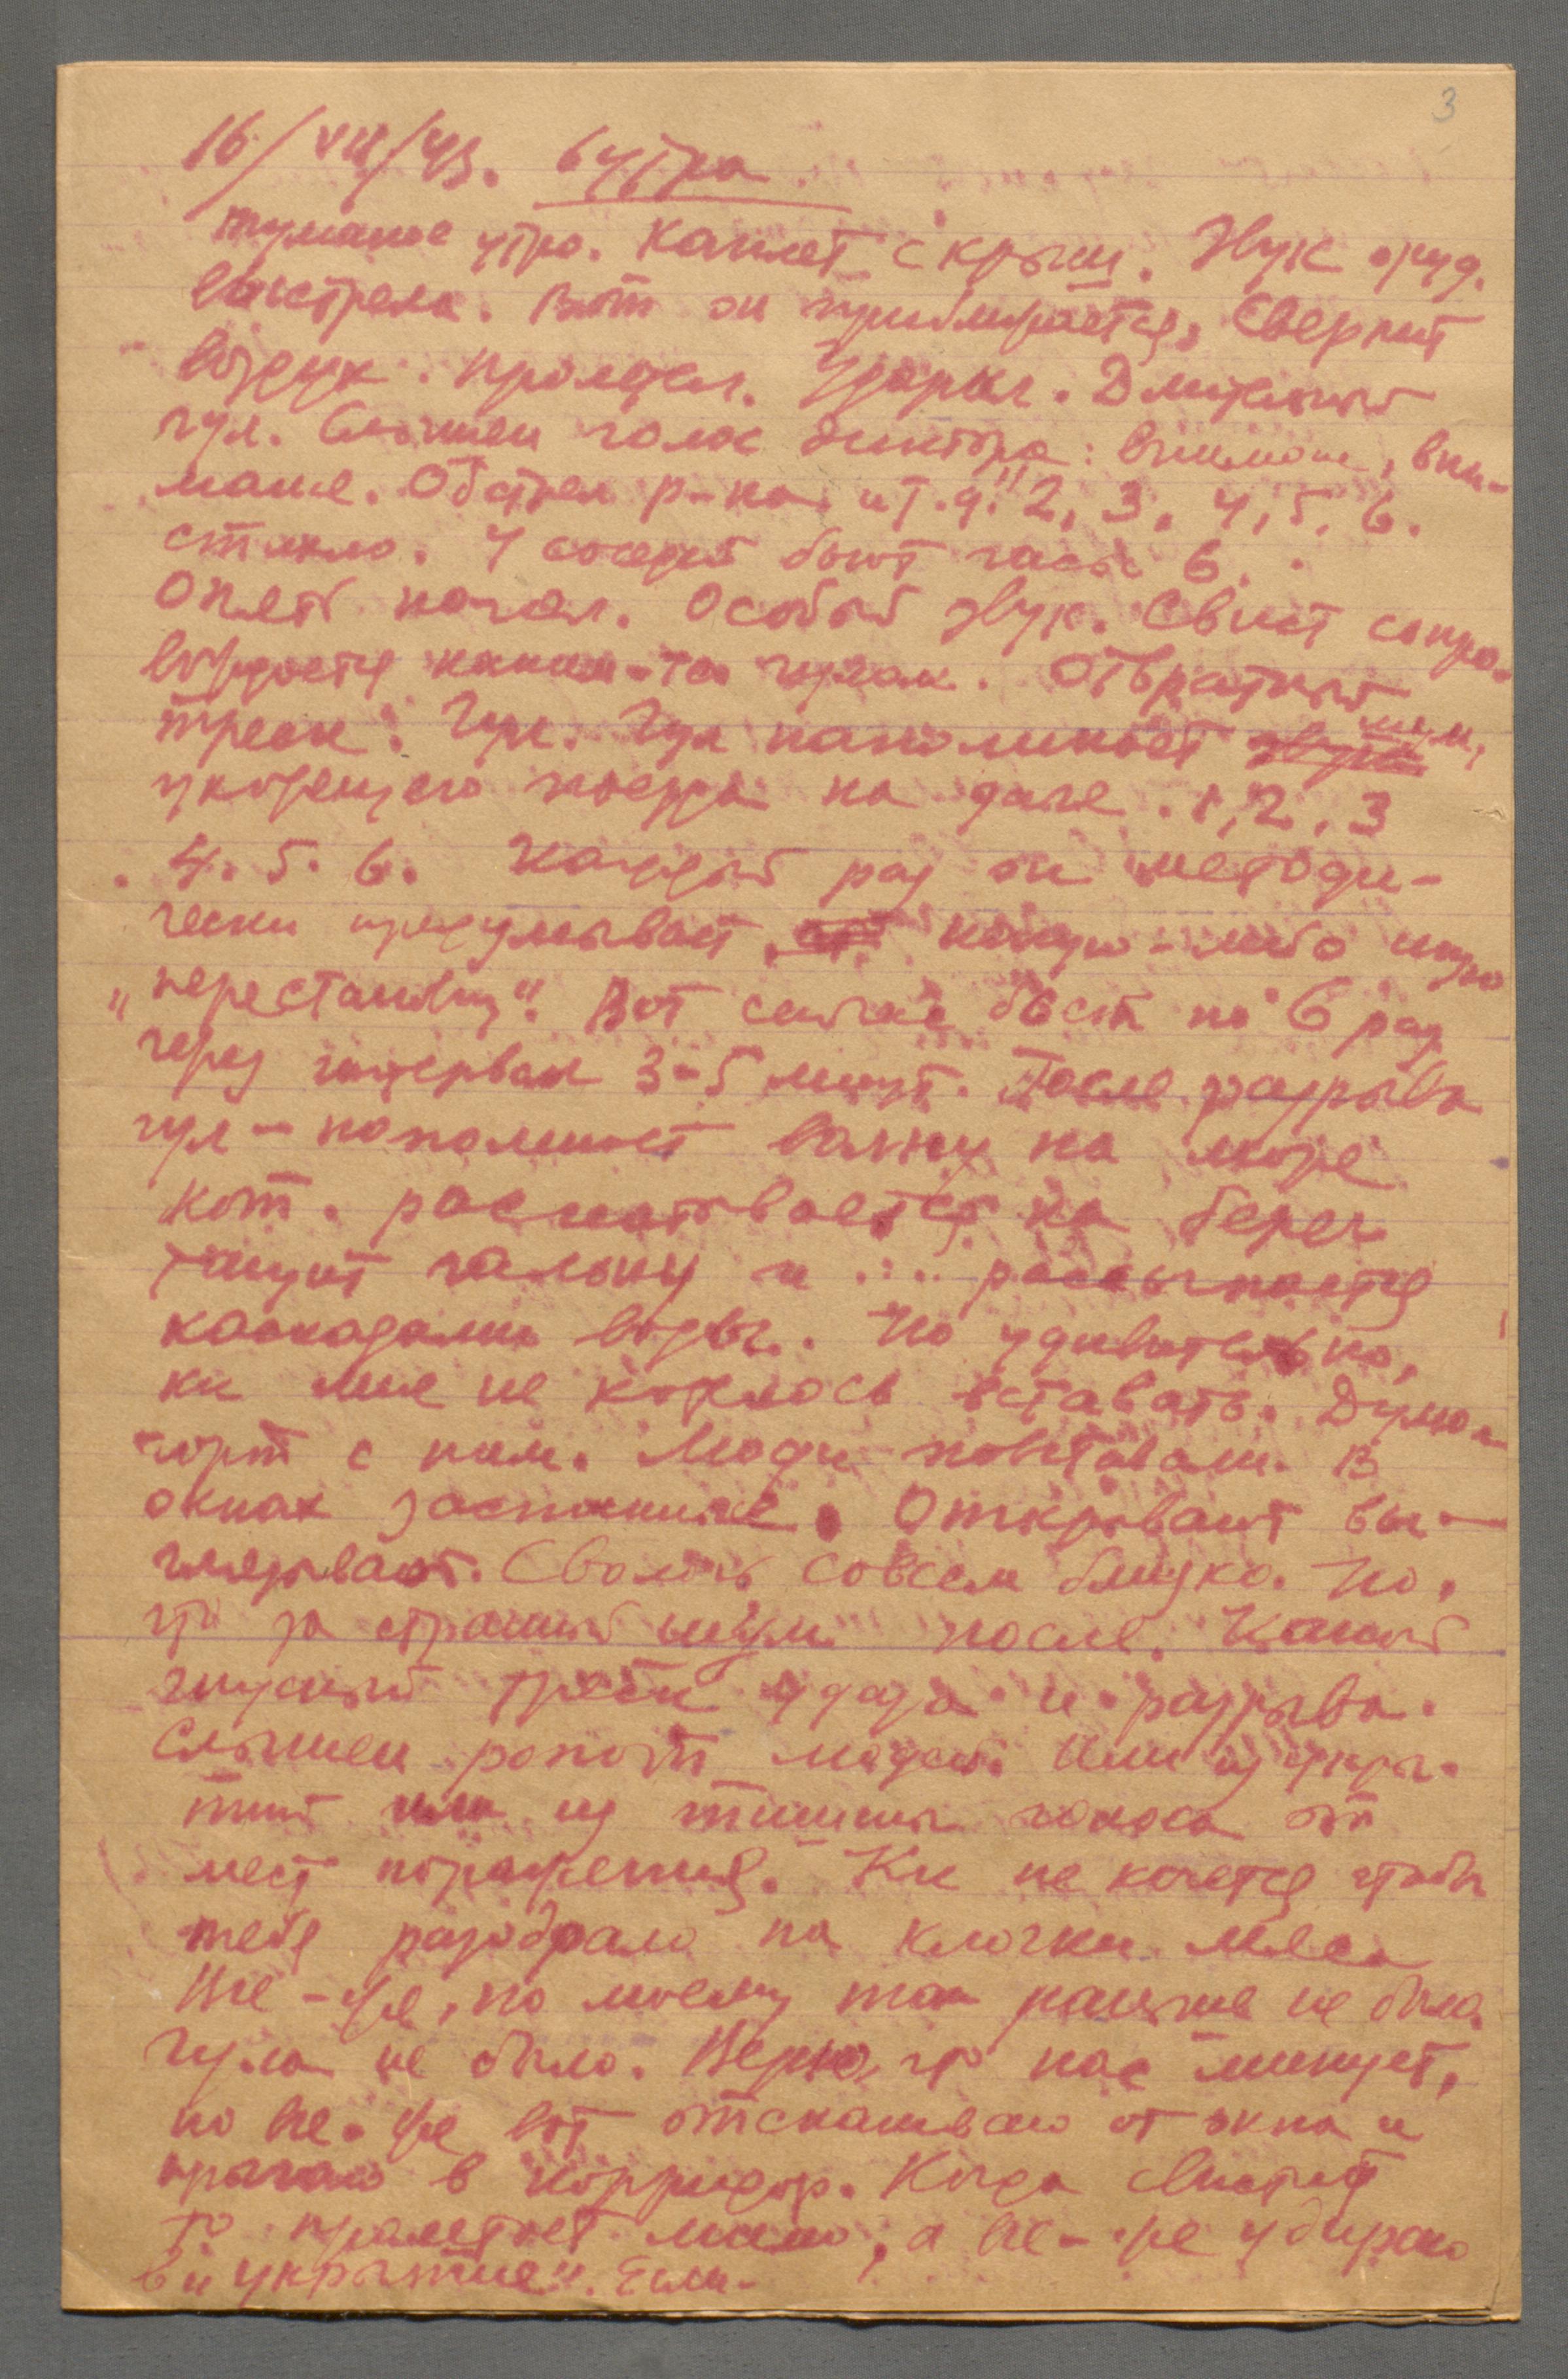 3
16/VII/43. 6 утра
туманое утро. Каплет с крыш. Звук оруд.
выстрела. Вот он приближается, сверлит
воздух. Пролетел. Ударил. Длительный
гул. Слышен голос диктора: внимание, вни-
мание. Обстрел р-на и т.д." 2, 3, 4, 5, 6.
стихло. У соседей бьют часы 6.
Опять начал. Особый звук. Свист сопро-
вождается каким-то гулом. Отвратный
треск. Гул. Гул напоминает шум,
уходящего поезда на даче. 1, 2, 3
. 4. 5. 6. Каждый раз он методи-
чески придумывает какую-либо иную
"перестановку". Вот сейчас бьет по 6 раз
через интервал 3-5 минут. После разрыва
гул - напоминает волну на море
кот. раскатывается на берег
тащит гальку и ... рассыпается
каскадами воды. Но удивительно,
как мне не хотелось вставать. Думаю
чорт с ним. Люди повставали. В
окнах заспанные. Открывают вы-
глядывают. Сволочь совсем близко. Но,
что за страшный шум после. Какой
гнусный треск удара и разрыва.
Слышен ропот людей. Или из укры-
тий или из тишины голоса от
мест поражения. Как не хочется чтобы
тебя разобрало на клочки мяса
Все-же, по моему так раньше не было.
Гула не было. Верю, что нас минует,
но все-же вот отскакиваю от окна и
прыгаю в корридор. Когда свистит
то пролетает мимо, а все-же убираю
в "укрытие". Если-